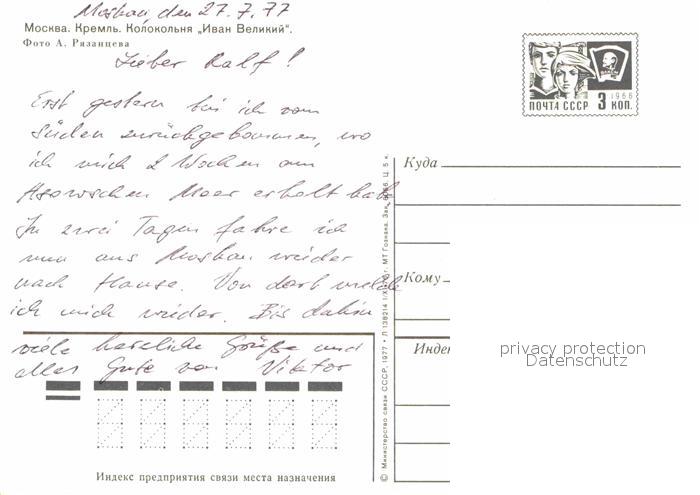 Moskau, den 27.7.77
Москва. Кремль. Колокольня „Иван Великий“.
Фото А. Рязанцева
Lieber Ralf!
Erst gestern bin ich vom
Süden zurückgekommen, wo
ich mich 2 Wochen am
Asowschen Meer erholt habe.
In zwei Tagen fahre ich
nun aus Moskau wieder
nach Hause. Von dort melde
ich mich wieder. Bis dahin
viele herzliche Grüße und
alles Gute von Viktor
Индекс предприятия связи места назначения
© Министерство связи СССР, 1977 • Л 138214 МТ Гознака. Зак. Ц. 5 к.
1966
ПОЧТА СССР 3 КОП.
Куда
Кому
Индекс
privacy protection
Datenschutz